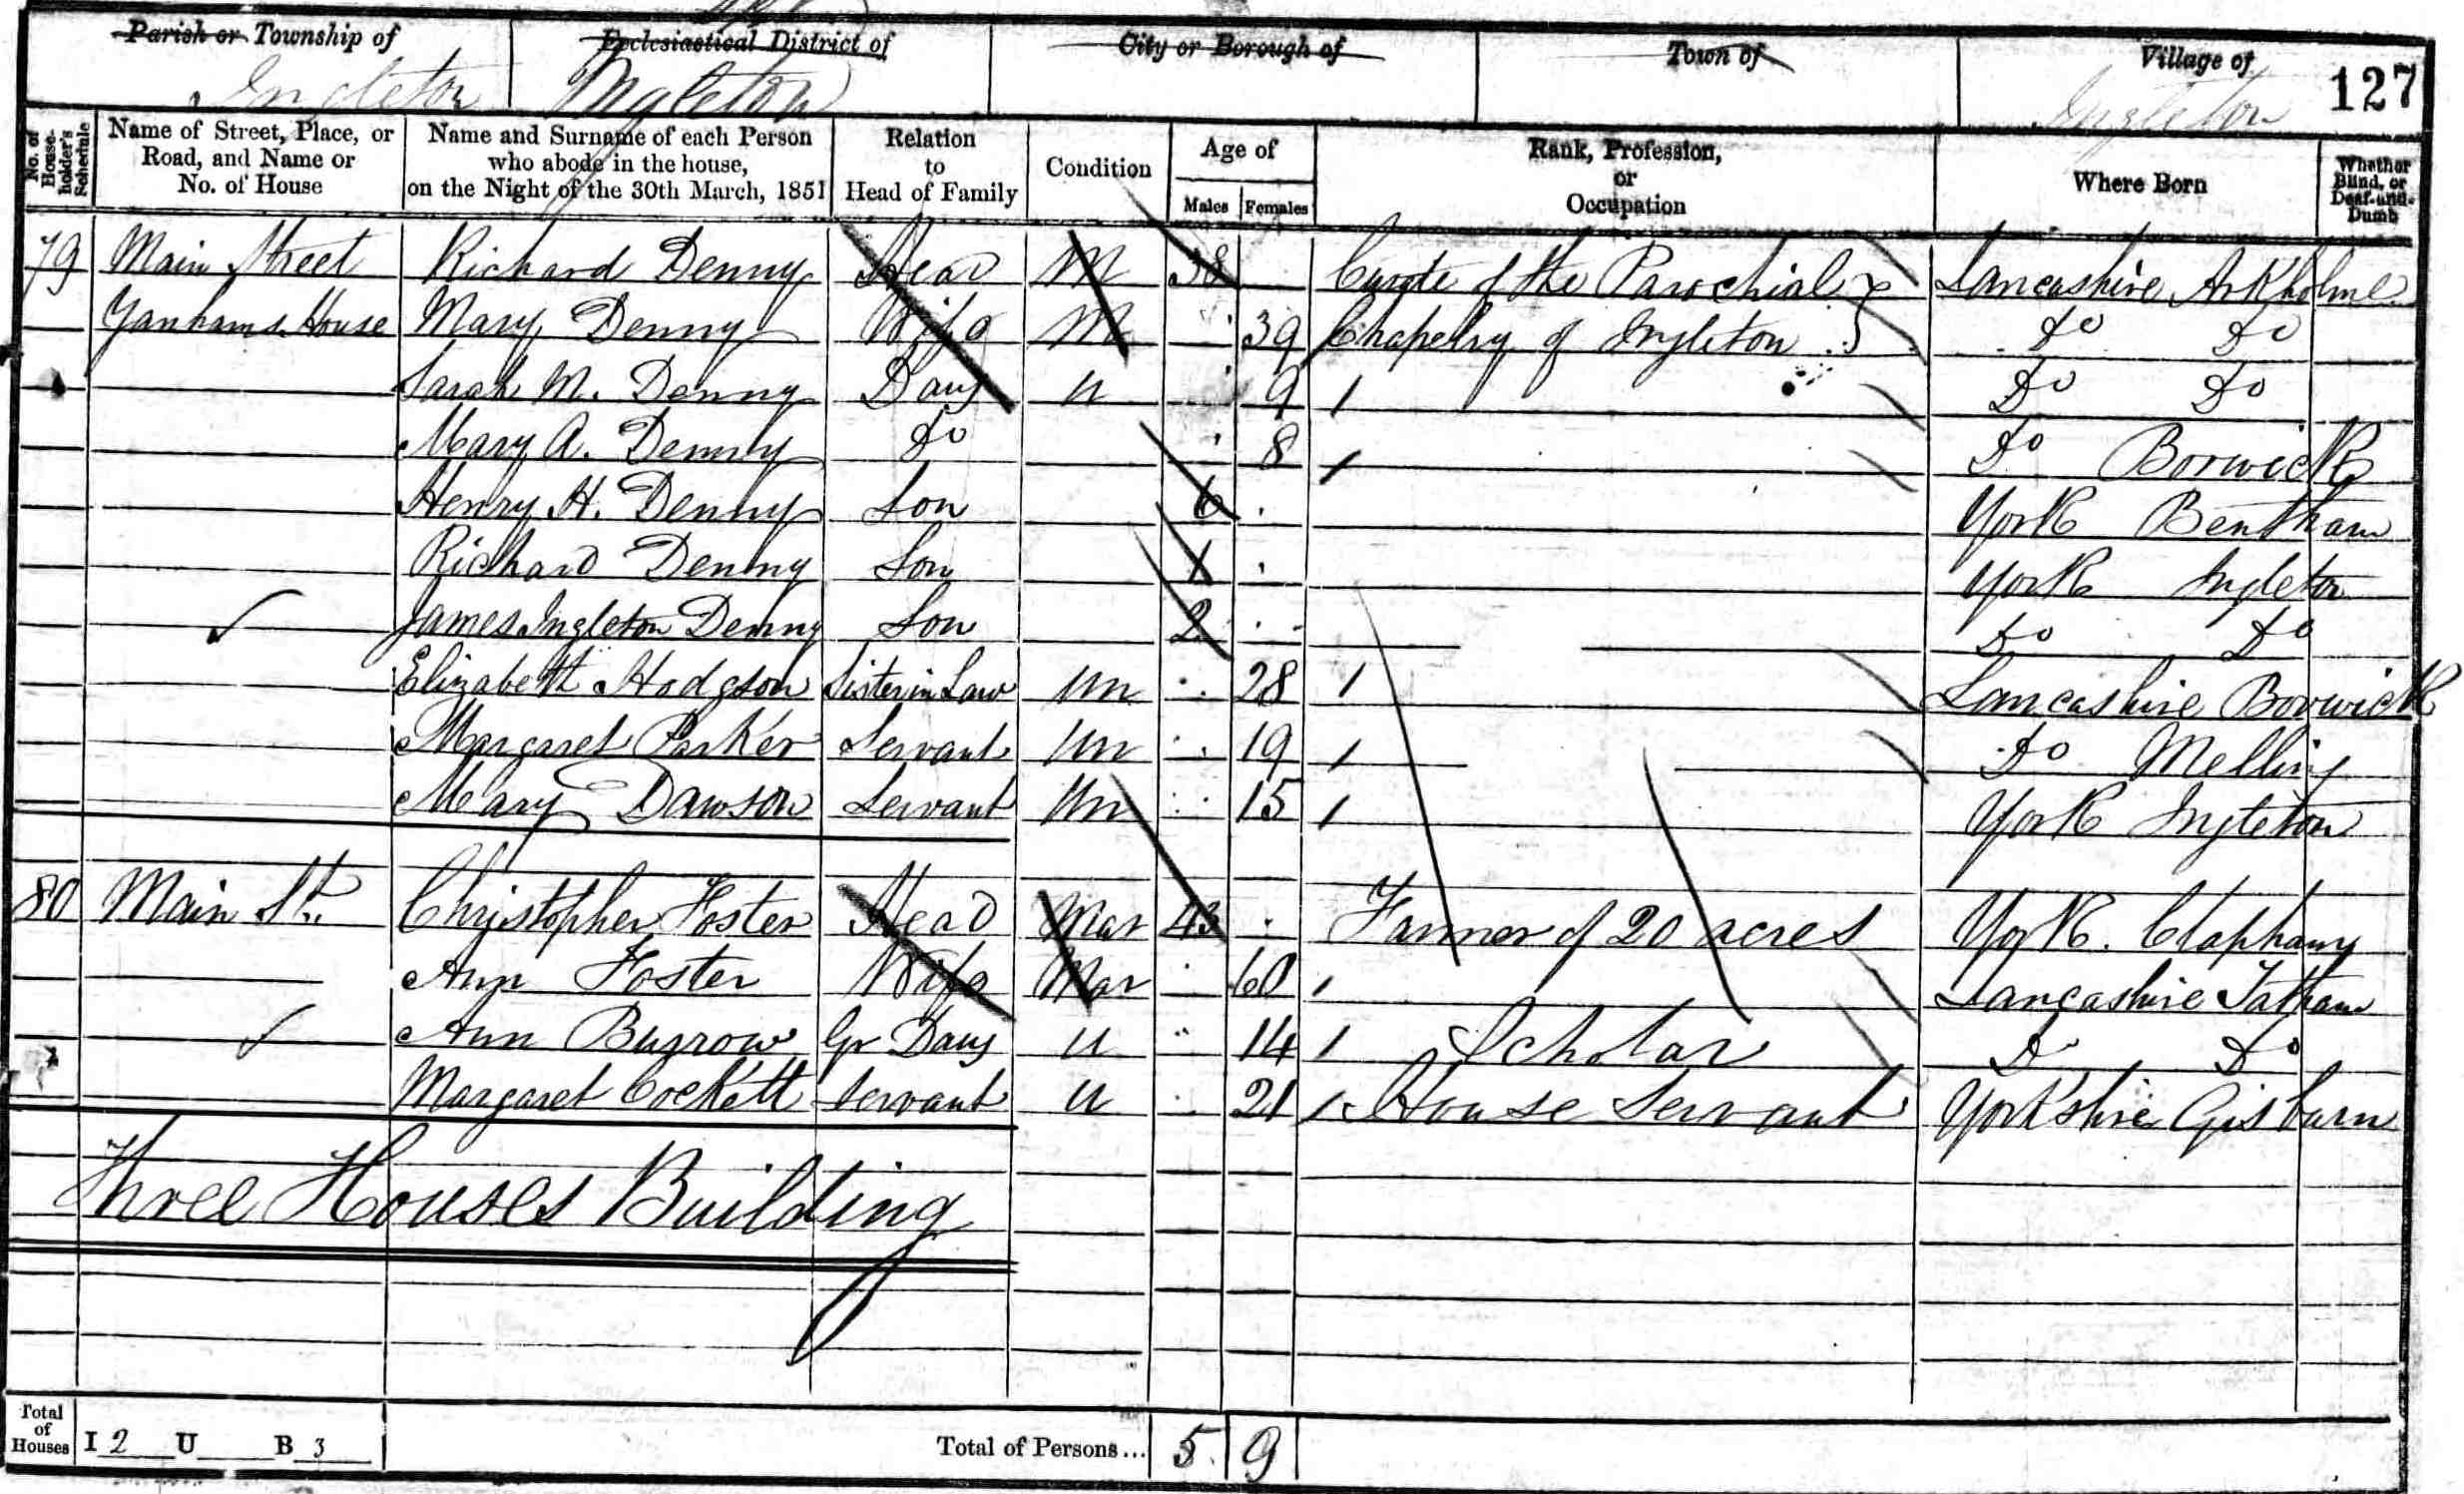 Parish or Township of Ecclesiastical District of City or Borough of Town of Village of 127
Ingleton Ingleton Ingleton
No. of House-holder's Schedule
Name of Street, Place, or Road, and Name or No. of House
Name and Surname of each Person who abode in the house, on the Night of the 30th March, 1851
Relation to Head of Family
Condition
Age of
Males Females
Rank, Profession, or Occupation
Where Born
Whether Blind, or Deaf-and-Dumb
79 Main Street Richard Denny Head M 38 Curate of the Parochial Lancashire Arkholme
House Mary Denny Wife M 39 Chapelry of Ingleton Do Do
Sarah M. Denny Daug u 9 Do Do
Mary A. Denny Do 8 Do Borwick
Henry H. Denny Son 6 York Bentham
Richard Denny Son 1 York Ingleton
James Ingleton Denny Son 2 Do Do
Elizabeth Hodgson Sister in Law Un 28 Lancashire Borwick
Margaret Parker Servant Un 19 Do Melling
Mary Dawson Servant Un 15 York Ingleton
80 Main St. Christopher Foster Head Mar 43 Farmer of 20 acres York. Clapham
Ann Foster Wife Mar 60 Lancashire Tatham
Ann Burrow Gr Daug U 14 Scholar Do Do
Margaret Cockett Servant U 21 House Servant Yorkshire Gisburn
Three Houses Building
Total of Houses I 2 U B 3 Total of Persons... 5 9